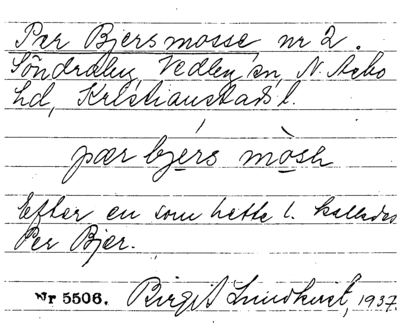 Per Bjersmosse nr 2.
Söndraby, Vedby sn, N. Åsbo
hd, Kristianstads l.
pær bjérs mòsh
Efter en som hette l. kallades
Per Bjer.
Nr 5506. Birgit Lundkvist, 1937.